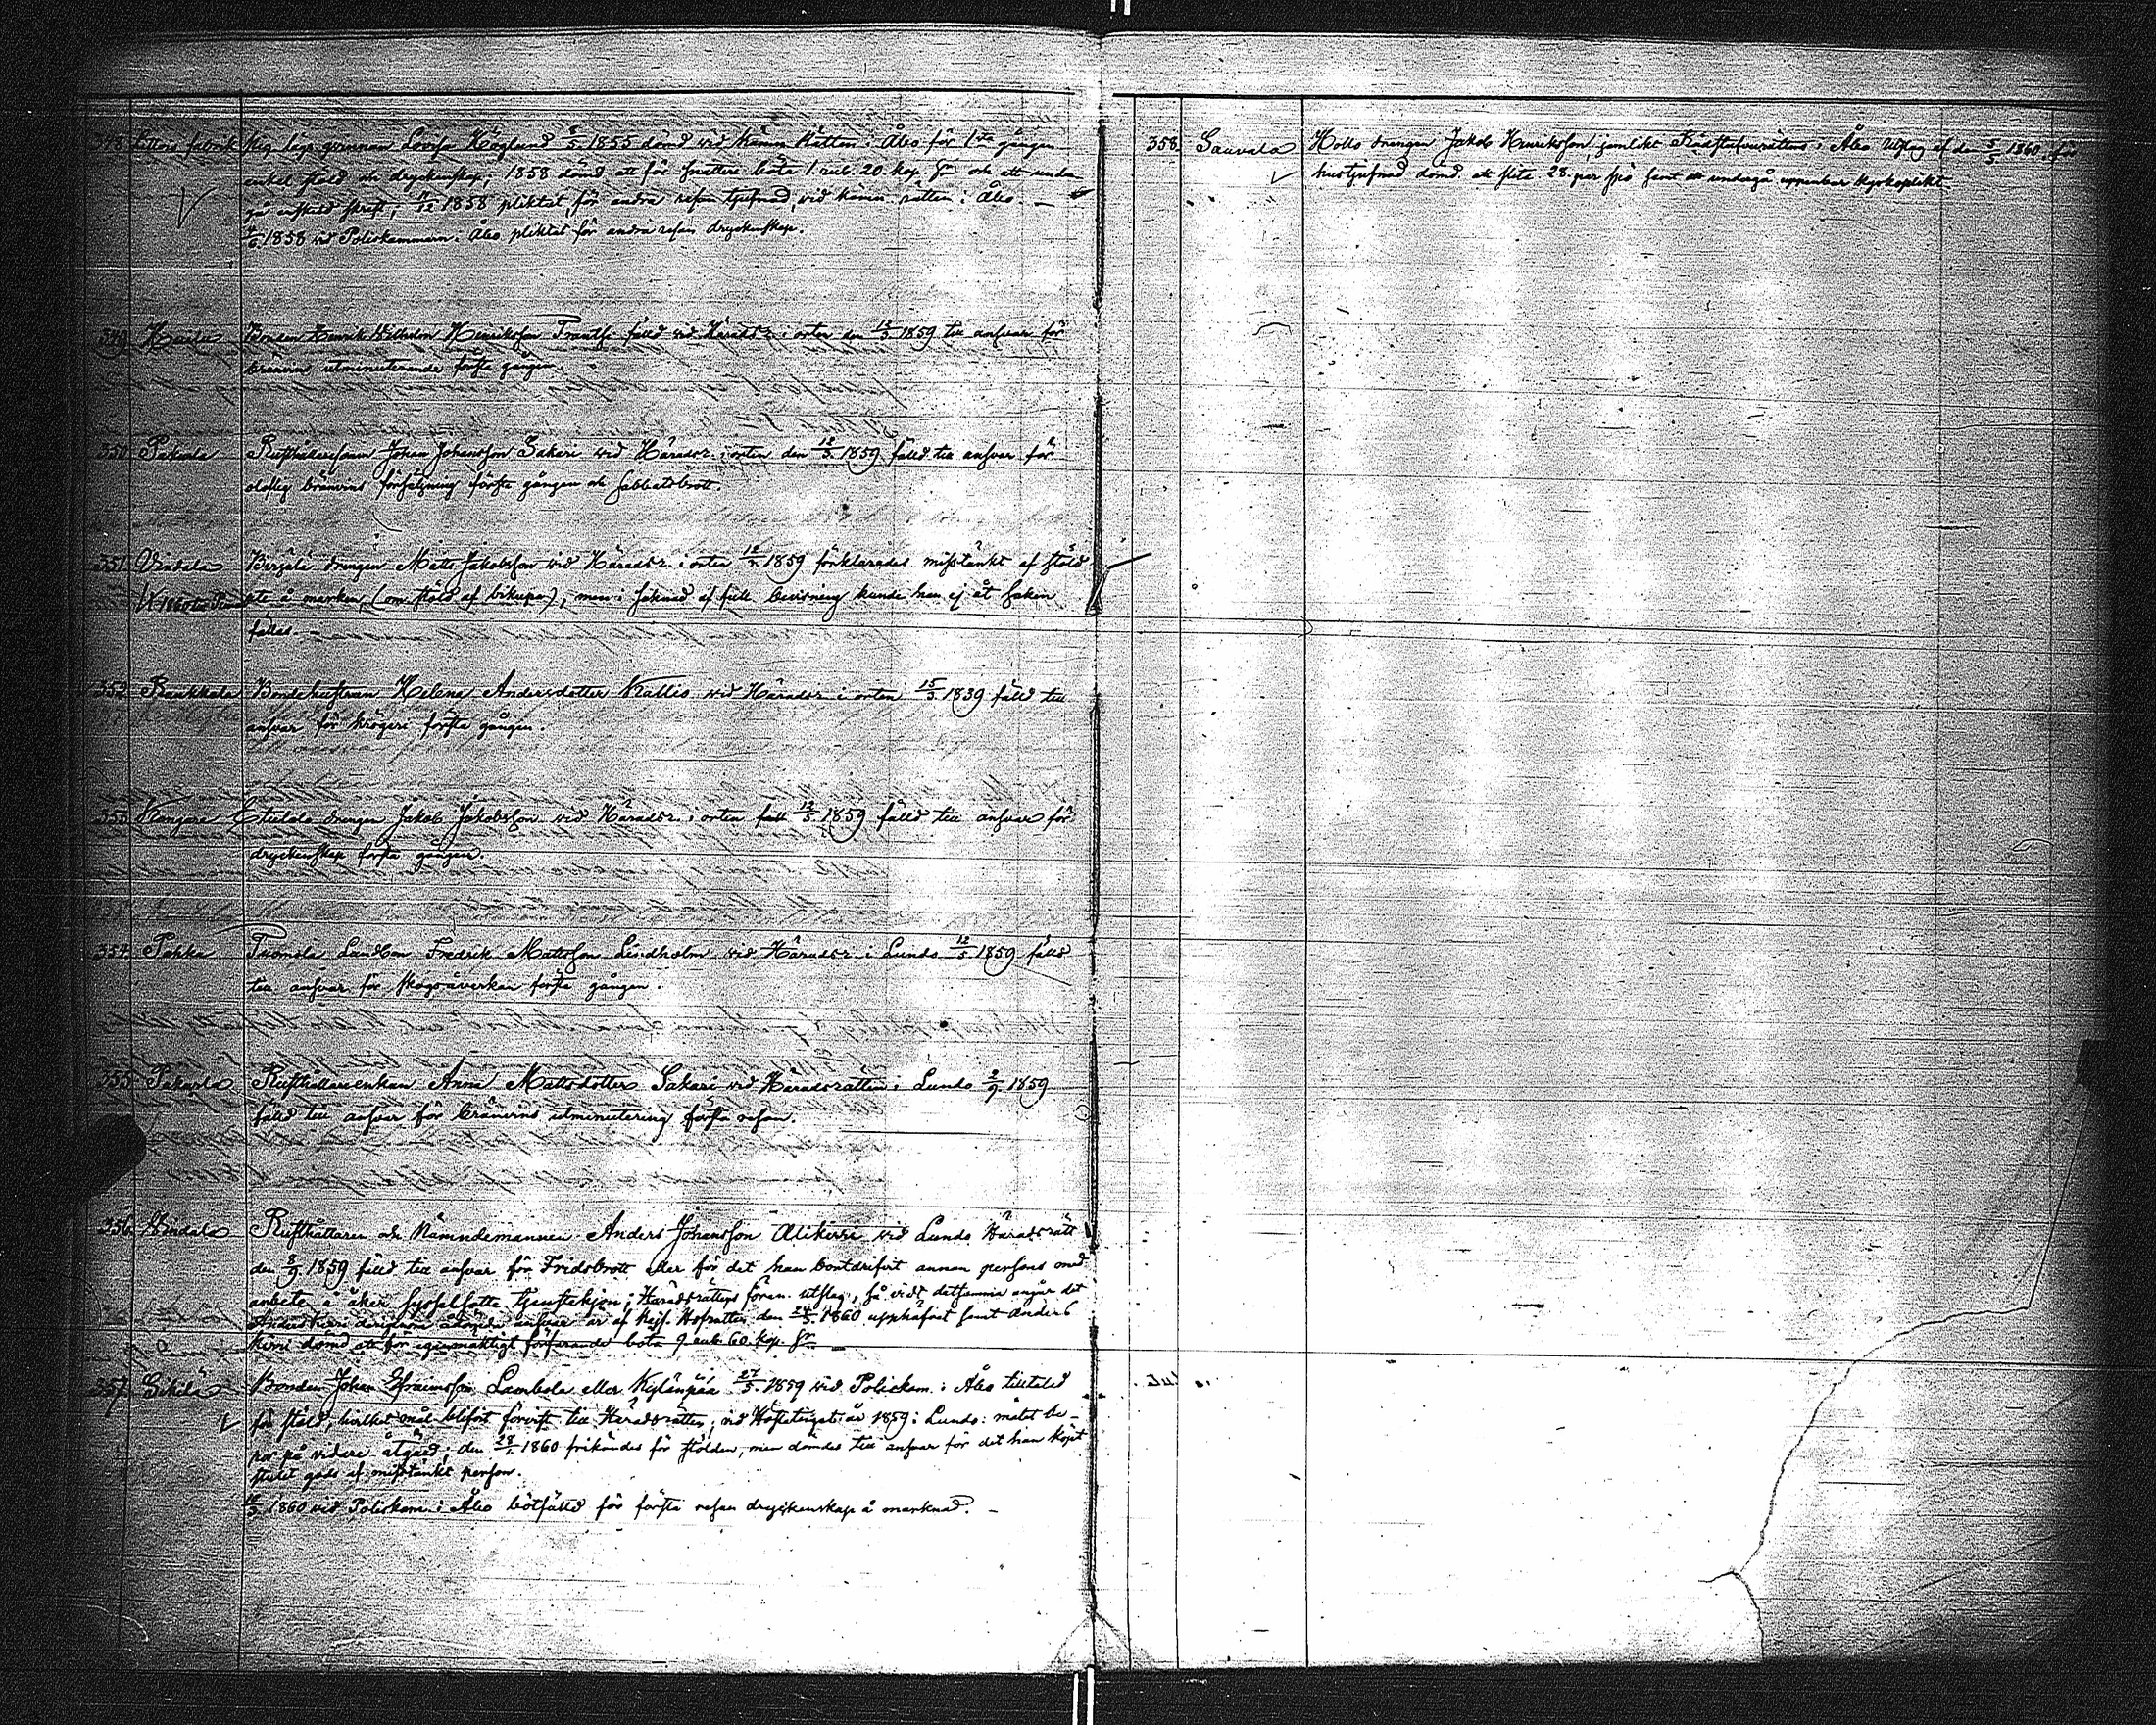 348. Littois fabrik Pig. lösa qvinnan Lovisa Höglund 8/5 1855 dömd vid Kämn. Rätten i Åbo för 1sta gången
enkel stöld och dryckenskap; 1858 dömd att för snatteri böta 1. rub. 20. kop. Sr och att under-
gå enskild skrift; 1858 pliktat för andra resan tjufnad, vid kämn. rätten i Åbo. —
1858 vid Poliskammarn i Åbo pliktat för andra resan dryckenskap.
349. Bonden Henrik Wilhelm Henriksson fälld vid Häradsr. i orten den 12/3 1859 till ansvar för
bränvins utminuterande första gången.
350. Rusthållaresonen Johan Johansson Sakari vid Häradsr. i orten den 12/3 1859 fälld till ansvar för
olaflig bränvins försäljning första gången och sabbatsbrott.
351. drengen Matts Jakobsson vid Häradsr. i orten 12/3 1859 förklarades misstänkt af stöld
å marken, (om stöld af bikupor), men i saknad af full bevisning kunde han ej åt saken
fällas. —
352. Raukkala Bondehustrun Helena Andersdotter Kallis vid Häradsr. i orten 15/3 1859 fälld till
ansvar för krögeri första gången.
353. Kangara drengen Jakob Jakobsson vid Häradsr. i orten 12/5 1859 fälld till ansvar för
dryckenskap första gången.
354. Pahka Tuomola Landbon Fredrik Mattsson Lindholm vid Häradsr. i Lundo 12/5 1859 fälld
till ansvar för skogsåverkan första gången.
355. Rusthållareenkan Anna Mattsdotter Sakari vid Häradsrätten i Lundo 2/9 1859
fälld till ansvar för bränvins utminutering första resan.
356. Rusthållaren och Nämndemannen Anders Johansson Alikirri vid Lundo Häradsrätt
den 1859 fälld till ansvar för Fridsbrott eller för det han bortdrifvit annan persons med
arbete i åker sysselsatte tjenstehjon; Häradsrättens förän. utslag, så vidt detsamma angår det
Anders Kirri ådömda ansvar är af Kejs. Hofrätten den 24/5 1860 upphäfvet samt Anders
Kirri dömd att för egenmäktigt förfarande böta 9 rub. 60 kop. Sr. —
357. Bonden Johan Efraimsson Lambola eller Kylänpää 27/5 1859 vid Poliskam. i Åbo tilltalad
för stöld, hvilket mål blifvit förvist till Häradsrätten; vid Hösttinget år 1859 i Lundo: målet be-
ror på vidare åtgärd; den 28/1 1860 frikändes för stölden, men dömdes till ansvar för det han köpt
stulet gods af misstänkt person.
1860 vid Poliskam. i Åbo bötfälld för första resan dryckenskap å marknad. —
358. Sauvala Hollo drengen Jakob Henriksson, jemlikt Rådstufvurättens i Åbo utslag af den 5/5 1860, för
hustjufnad dömd att slita 28. par spö samt att undergå uppenbar kyrkoplikt.